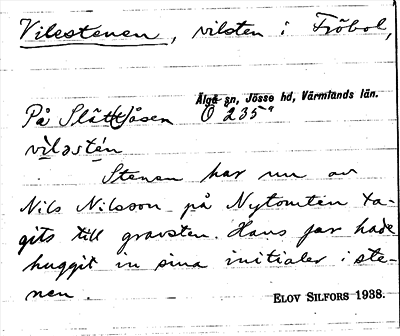 Vilestenen, vilsten i Fröbol,
Älgå sn, Jösse hd, Värmlands län.
På Slått(t)åsen Ö 235ᵃ
viləstén
Stenen har nu av
Nils Nilsson på Nytomten ta-
gits till gravsten. Hans far hade
huggit in sina initialer i ste-
nen.
ELOV SILFORS 1938.